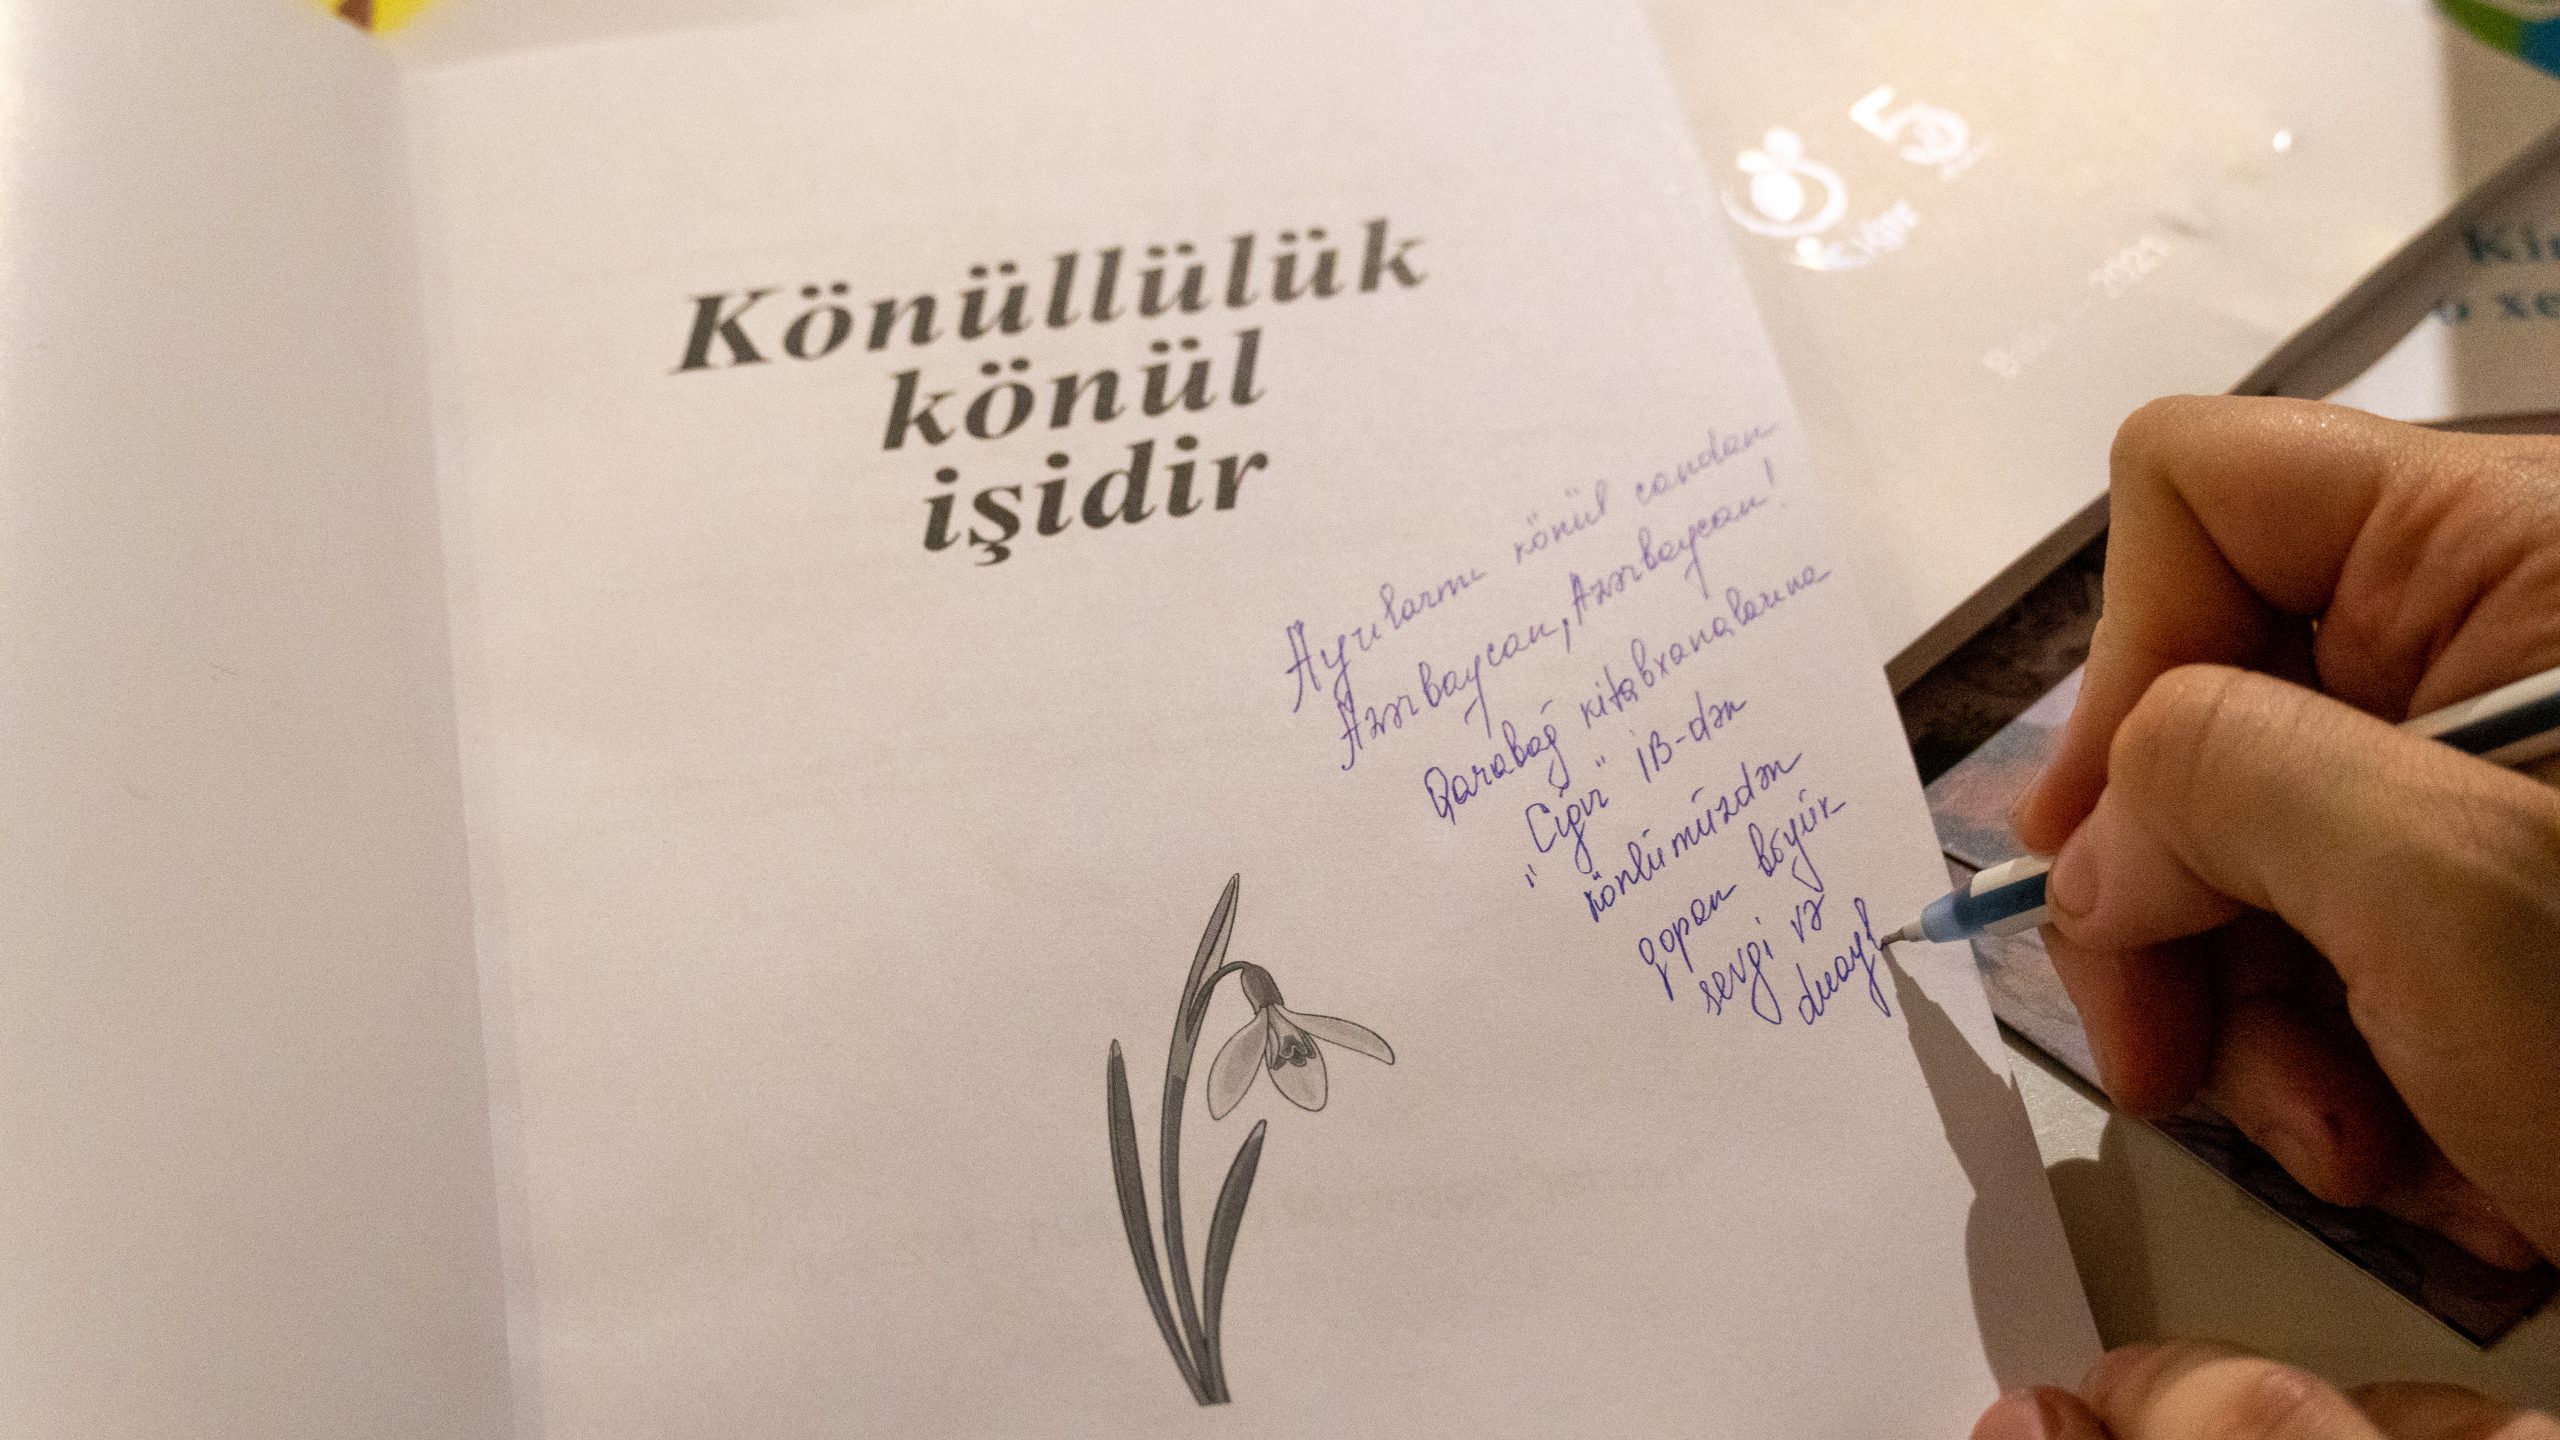 Könüllülük
könül
işidir
Ayrılarmı könül candan
Azərbaycan, Azərbaycan!
Qarabağ kitabxanalarına
"Cığır" İB-dən
könlümüzdən
qopan böyük
sevgi və
duayl
Cığır
50
2021
Ki
ə xe